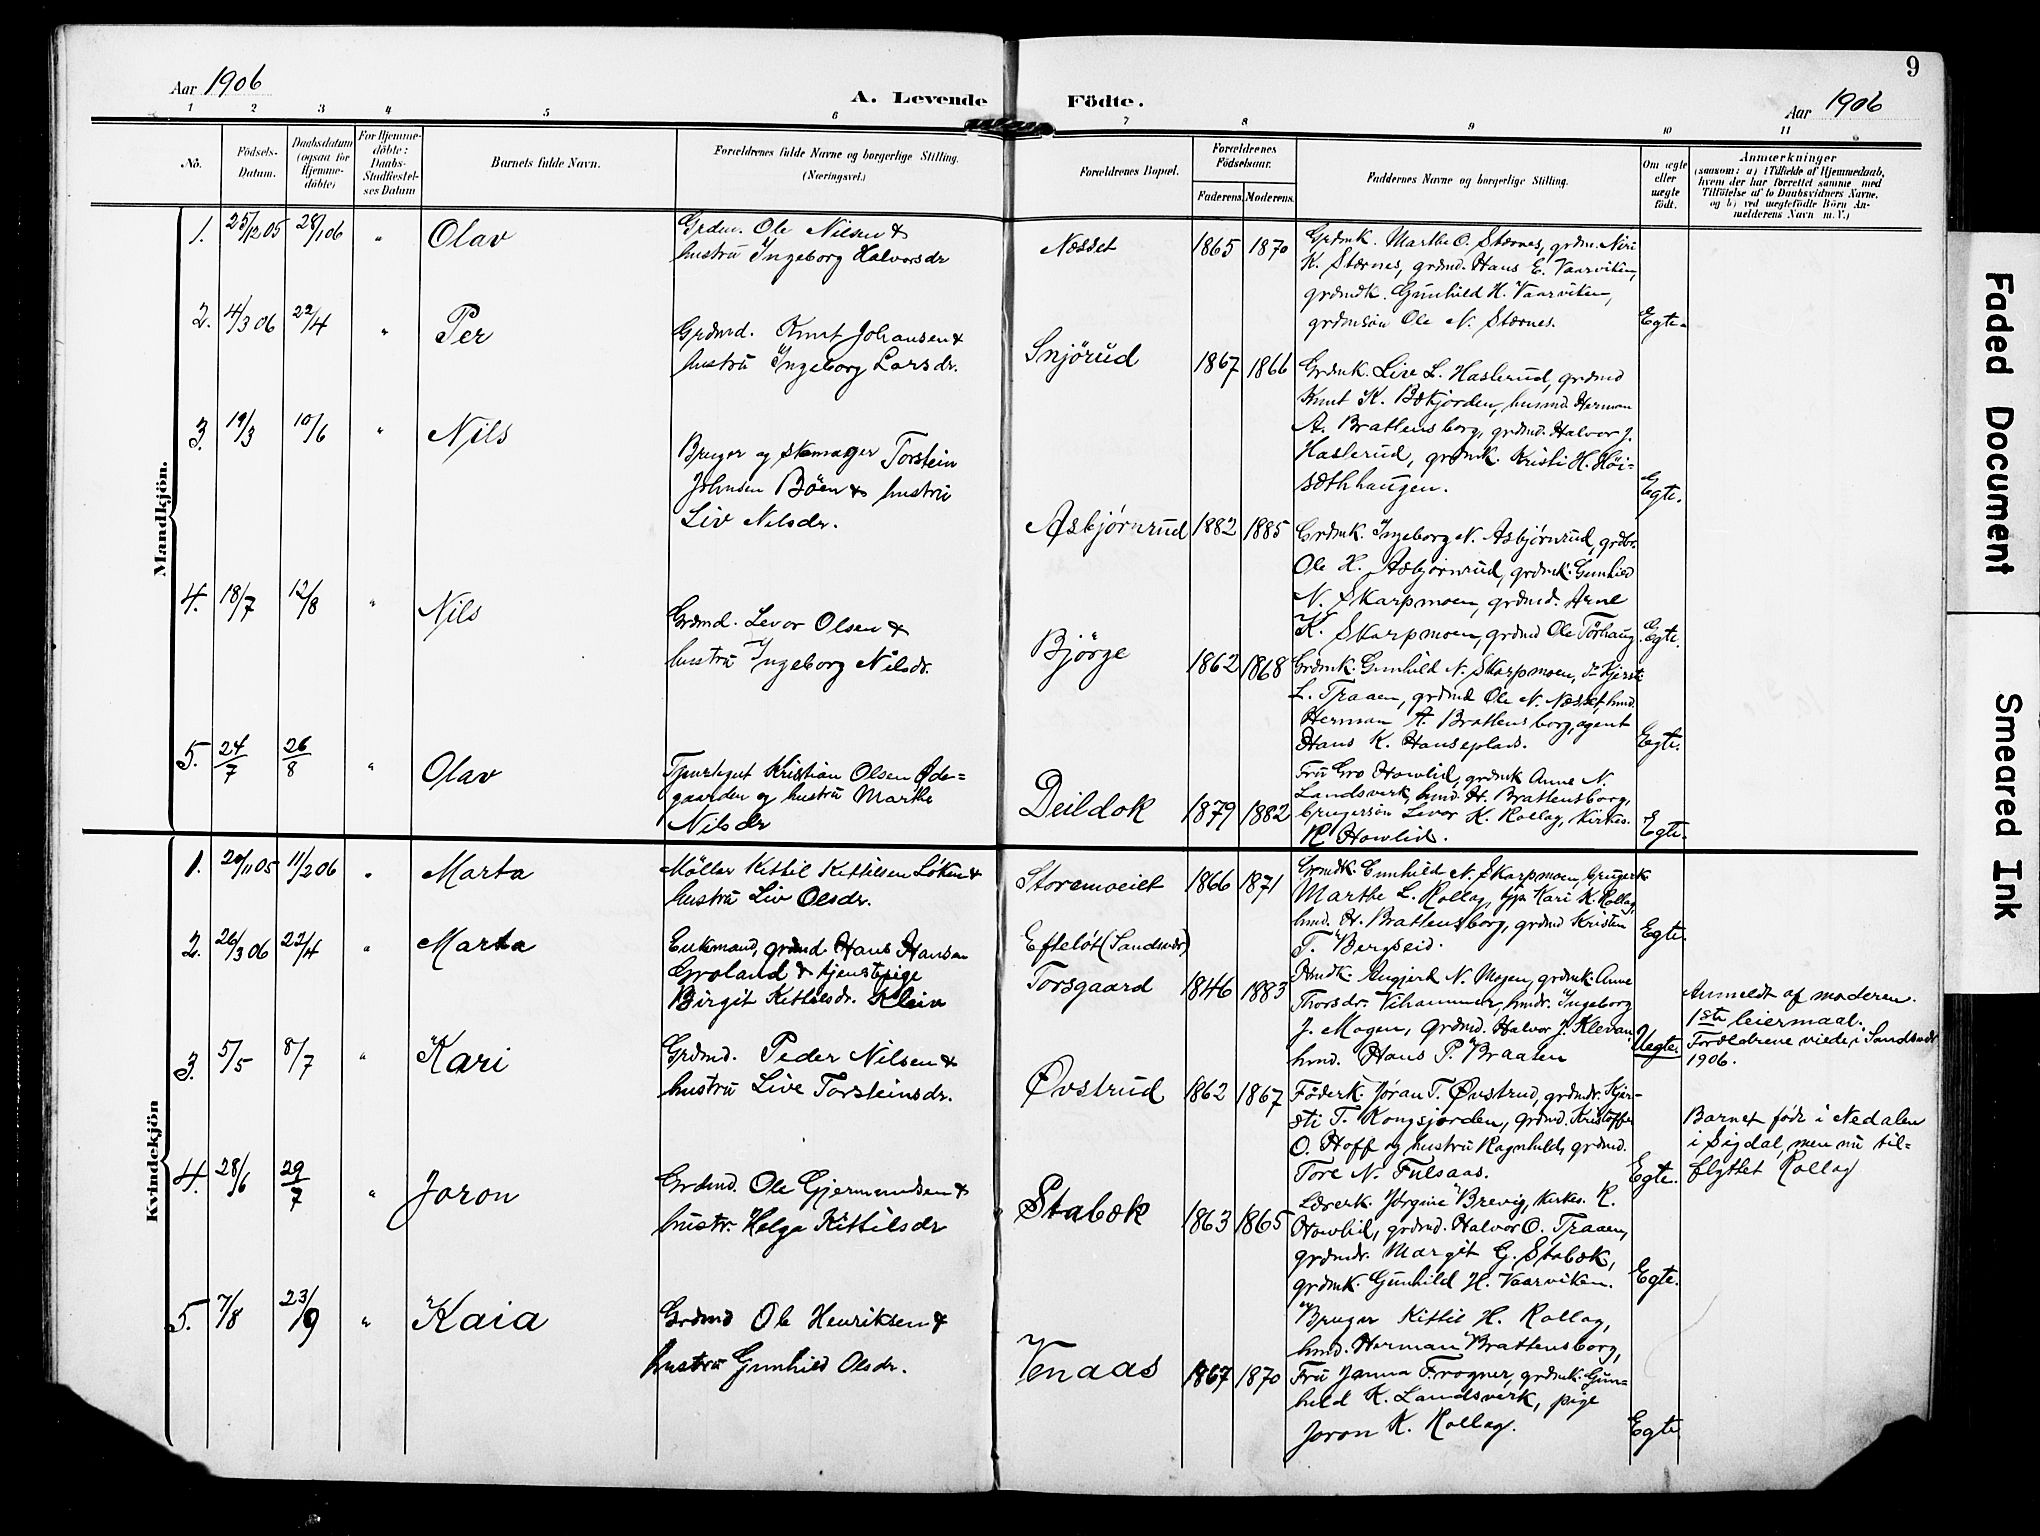 9
Aar 1906
A. Levende Födte.
Aar 1906
1 2 3 4 5 6 7 8 9 10 11
No.
Födsels-
Datum.
Daabsdatum
(ogsaa for
Hjemme-
döbte)
For Hjemme-
döbte:
Daabs-
Stadfæstel-
ses Datum
Barnets fulde Navn.
Forældrenes fulde Navne og borgerlige Stilling.
(Næringsvei.)
Forældrenes Bopæl.
Forældrenes
Födselsaar.
Faderens. Moderens.
Faddernes Navne og borgerlige Stilling.
Om ægte
eller
uægte
födt.
Anmærkninger
(saasom: a) i Tilfælde af Hjemmedaab,
hvem der har forrettet samme med
Tilföielse af to Daabsvidners Navne,
og b) ved uægtefödte Börn An-
melderens Navn m. V.)
Mandkjön.
1. 25/12 05 28/1 06 " Olav
Grdm. Ole Nilsen &
hustru Ingeborg Halvorsdr
Næsset 1865 1870
Grdmk. Marthe O. Stærnes, grdm. Niri
K. Stærnes, grdmd. Hans E. Vaarviken,
grdmdk. Gunhild H. Vaarviken,
grdmsøn Ole N. Stærnes.
Egte.
2. 4/3 06 22/4 " Per
Grdmd. Knut Johansen &
hustru Ingeborg Larsdr.
Snjörud 1867 1866
Grdmk. Live L. Haslerud, grdmd
Knut K. Bækjorden, husmd. Herman
A. Brattensborg, grdmd. Halvor J.
Haslerud, grdmk. Kristi H. Höi-
sæthhaugen.
Egte.
3. 19/3 10/6 " Nils
Bruger og skomager Torstein
Johnsen Böen & hustru
Liv Nilsdr.
Asbjørnrud 1882 1885
Grdmk. Ingeborg N. Asbjørnrud, grdbr.
Ole H. Asbjørnrud, grdmk. Gunhild
N. Skarpmoen, grdmd. Arne
K. Skarpmoen, grdmd Ole Törhaug
Egte.
4. 18/7 12/8 " Nils
Grdmd. Levor Olsen &
hustru Ingeborg Nilsdr.
Bjørge 1862 1868
Grdmk. Gunhild N. Skarpmoen, do Kjersti
L. Traaen, grdmd Ole N. Næsset, hmd.
Herman A. Brattensborg, agent
Hans K. Hanseplads.
Egte.
5. 24/7 26/8 " Olav
Kristian Olsen Øde-
gaarden og hustru Marthe
Nilsdr
Deildok 1879 1882
Fru Gro Howlid, grdmk Anne N.
Landsverk, hmd. H. Brattensborg,
brugersøn Levor K. Rollag, Kirkes.
R. Howlid.
Egte.
Kvindekjön
1. 20/11 05 11/2 06 " Marta
Möllar Kittil Kittilsen Löken &
hustru Liv Olsdr.
Storemoeiet 1866 1871
Grmdk. Gunhild N. Skarpmoen, brugerk
Marthe L. Rollag, tjp. Kari K. Rollag,
hmd. H. Brattensborg, grdmd Kristen
T. Bergseid.
Egte.
2. 26/3 06 22/4 " Marta
Enkemand, grdmd. Hans Hansen
Groland & tjenstpige
Birgit Kittilsdr. Kleiv
Efteløt (Sandsvær)
Torsgaard 1846 1883
Hmdk. Angjerd N. Mogen, grdmk. Anne
Thorsdr. Vihammer, hmdr. Ingeborg
J. Mogen, Grdmd. Halvor J. Klevan,
hmd. Hans P. Braaten
Uegte.
Anmeldt af moderen.
1ste leiermaal.
Forældrene viede i Sandsvær
1906.
3. 5/5 8/7 " Kari
Grdmd. Peder Nilsen &
hustru Live Torsteinsdr.
Øvstrud 1862 1867
Föderk. Jöran T. Øvstrud, grdmdr. Kjer-
sti T. Kongsjorden, grdmd. Kristoffer
O. Hoff og hustru Ragnhild, grdmd.
Tore N. Fulsaas.
Egte.
Barnet født i Nedalen
i Sigdal, men nu til-
flyttet Rollag
4. 28/6 29/7 " Joron
Grdmd. Ole Gjermundsen &
hustr. Helga Kittilsdr
Stabæk 1863 1865
Lærerk. Jørgine Brevig, Kirkes. R.
Howlid, grdmd. Halvor O. Traaen,
grdmdr. Margit G. Stabæk,
grdmk. Gunhild H. Vaarviken.
Egte.
5. 7/8 23/9 " Kaia
Grdmd Ole Henriksen &
hustru Gunhild Olsdr.
Venaas 1867 1870
Bruger Kittil H. Rollag,
hmd. Herman Brattensborg,
Fru Janna Frogner, grdmk. Gun-
hild K. Landsverk, pige
Joron K. Rollag.
Egte
Faded Document
Smeared Ink